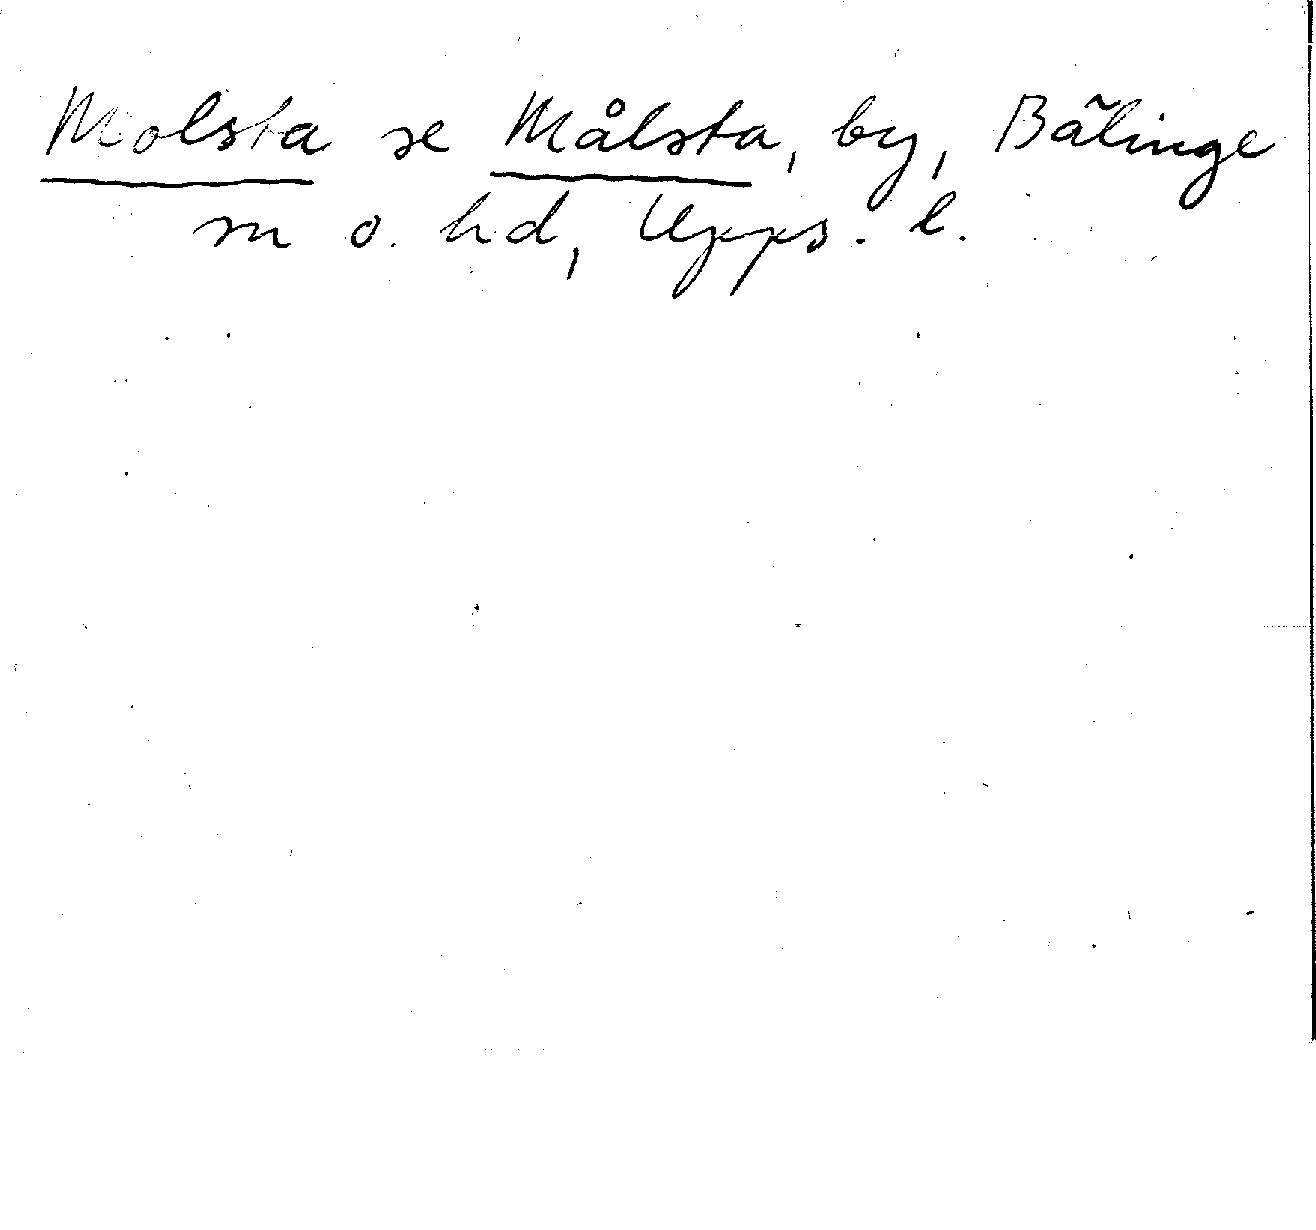 Molsta se Målsta, by, Bälinge
sn o. hd, Upps. l.